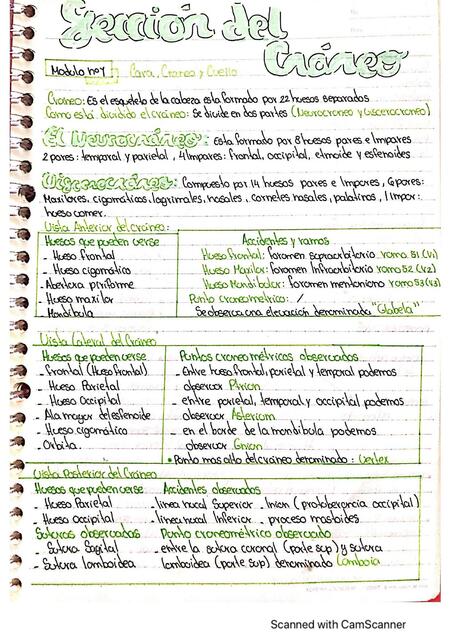 Sección del
Cráneo
Modulo nº1 Cara, Craneo y Cuello
Craneo: Es el esqueleto de la cabeza esta formado por 22 huesos separados
Como está dividido el craneo: Se divide en dos partes (Neurocraneo y Viscerocraneo)
El Neurocráneo: Esta formado por 8 huesos pares e Impares
2 pares: temporal y parietal, 4 Impares: frontal, occipital, etmoide y esfenoides
Compuesto por 14 huesos pares e Impares, 6 pares:
Maxilares, cigomáticos, lagrimales, nasales, cornetes nasales, palatinos, 1 Impar:
hueso vomer.
Vista Anterior del cráneo:
Huesos que pueden verse
- Hueso frontal
- Hueso cigomatico
- Abertura piriforme
- Hueso maxilar
- Mandíbula
Accidentes y ramos
Hueso frontal: foramen supraorbitario ramo S1 (V1)
Hueso Maxilar: foramen Infraorbitario ramo S2 (V2)
Hueso Mandibular: foramen mentoniano ramo S3 (V3)
Punto craneometrico: /
Se observa una elevación denominada "Glabela"
Vista Lateral del Cráneo
Huesos que pueden verse
- Frontal (Hueso frontal)
- Hueso Parietal
- Hueso Occipital
- Ala mayor del esfenoide
- Hueso cigomático
- Orbita.
Puntos craneométricos observados
- Entre hueso frontal, parietal y temporal podemos
observar Pterion
- entre parietal, temporal y occipital podemos
observar Asterium
- en el borde de la mandibula podemos
observar Gnion
• Punto mas alto del craneo denominado: Vertex
Vista Posterior del Cráneo
Huesos que pueden verse
- Hueso Parietal
- Hueso Occipital
Accidentes observados
- linea nucal Superior - Inion (protoberancia occipital)
- linea nucal Inferior - proceso mastoides
Suturas observadas
- Sutura Sagital
- Sutura lamboidea
Punto craneometrico observado
- entre la sutura coronal (parte sup) y sutura
lamboidea (parte sup) denominado Lamboia
Scanned with CamScanner